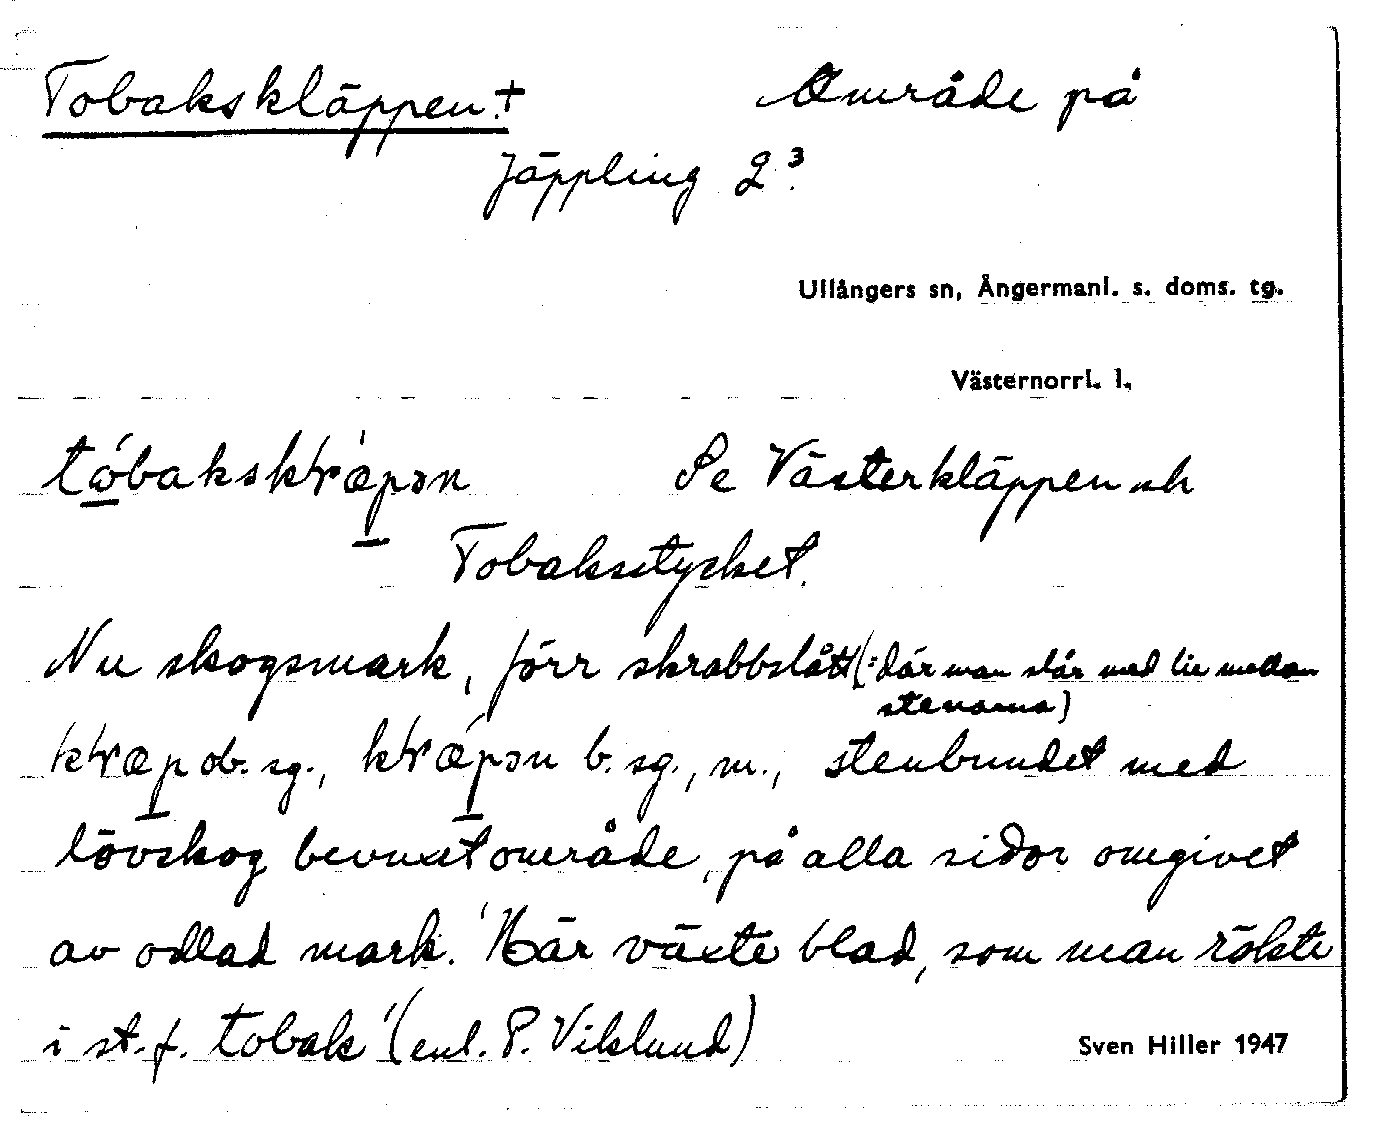 Tobakskläppen.+ Område på
Jäppling 2³.
Ullångers sn, Ångermanl. s. doms. tg.
Västernorrl. l.
Se Västerkläppen och
Tobaksstycket.
Nu skogsmark, förr skrabbslått (= där man slår med lie mellan
stenarna)
ob. sg., b. sg., m., stenbundet med
lövskog bevuxet område, på alla sidor omgivet
av odlad mark. 'Här växte blad, som man rökte
i st. f. tobak' (enl. P. Viklund)
Sven Hiller 1947